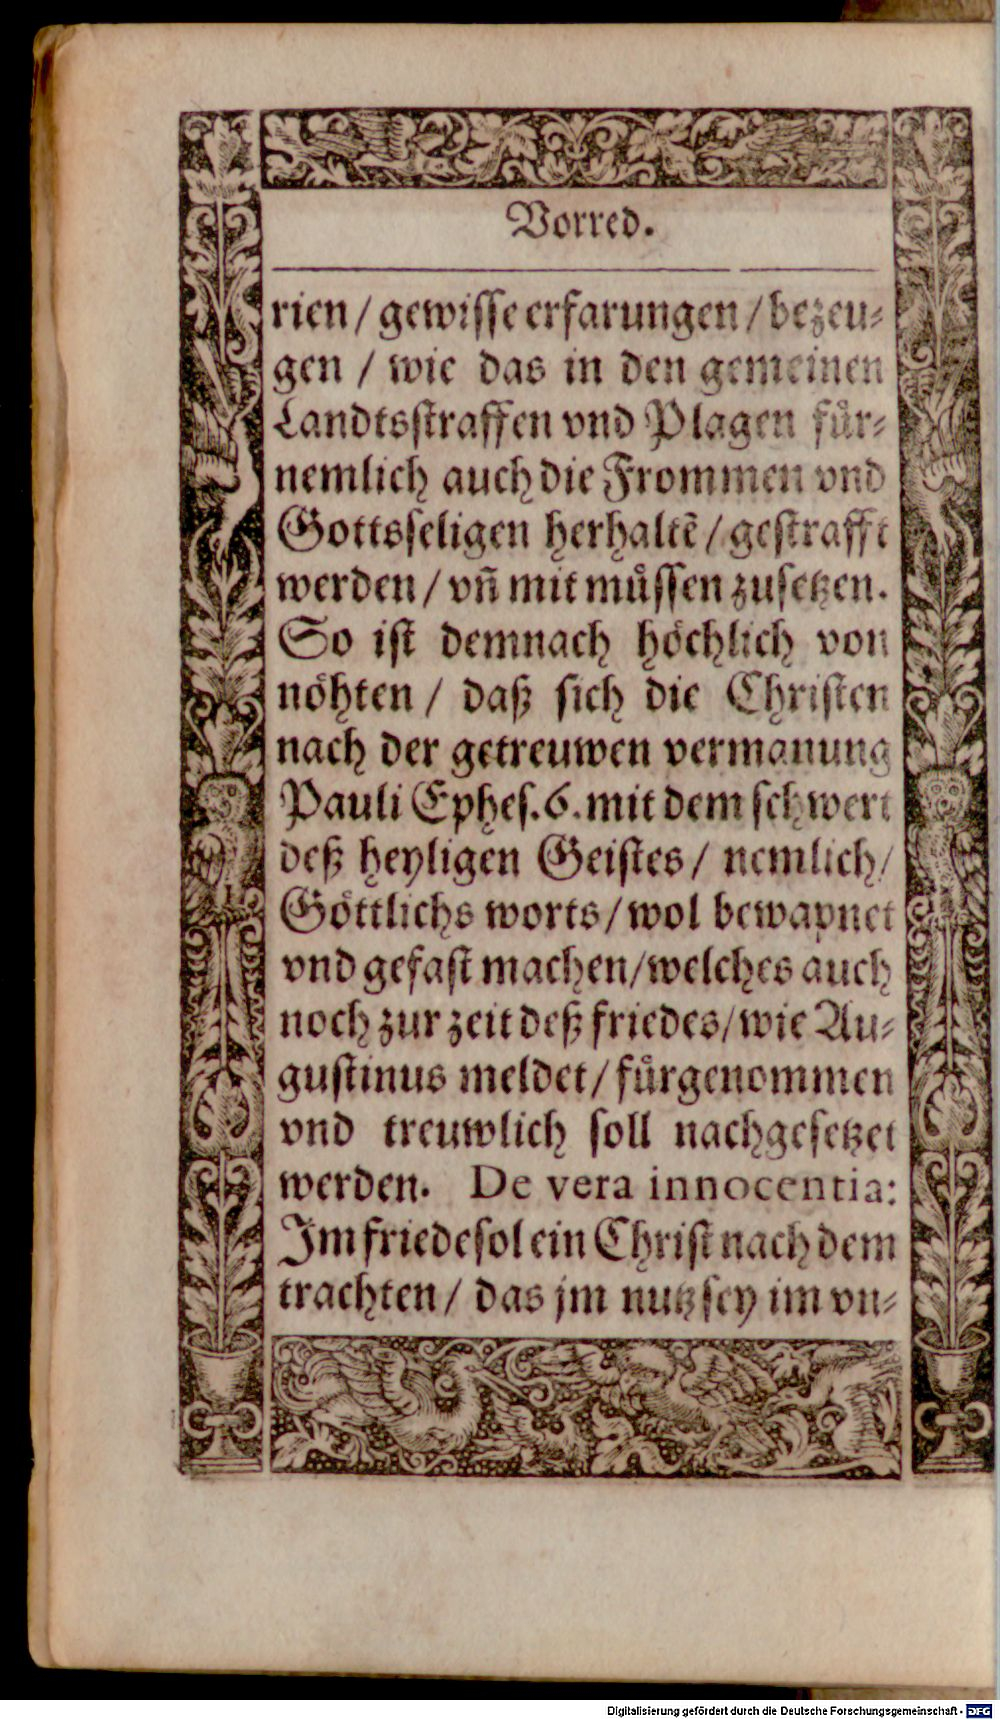 Vorred.
rien / gewisse erfarungen / bezeu⸗
gen / wie das in den gemeinen
Landtsstraffen vnd Plagen fuͤr⸗
nemlich auch die Frommen vnd
Gottsseligen herhaltẽ / gestrafft
werden / vñ mit muͤssen zusetzen.
So ist demnach hoͤchlich von
noͤhten / daß sich die Christen
nach der getreuwen vermanung
Pauli Ephes. 6. mit dem schwert
deß heyligen Geistes / nemlich /
Goͤttlichs worts / wol bewapnet
vnd gefast machen / welches auch
noch zur zeit deß friedes / wie Au⸗
gustinus meldet / fuͤrgenommen
vnd treuwlich soll nachgesetzet
werden. De vera innocentia:
Im friede sol ein Christ nach dem
trachten / das jm nutz sey im vn⸗
Digitalisierung gefördert durch die Deutsche Forschungsgemeinschaft - DFG